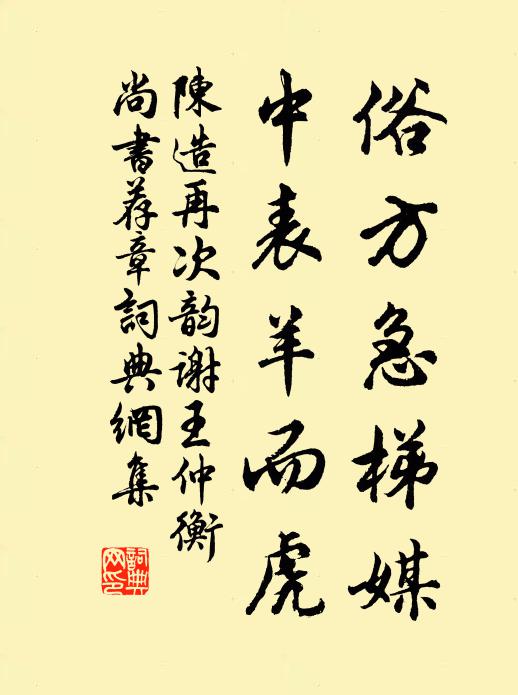 俗方急梯媒
中表羊而虎
陳造再次韵谢王仲衡
尚書荐章詞典網集
詞典
网印